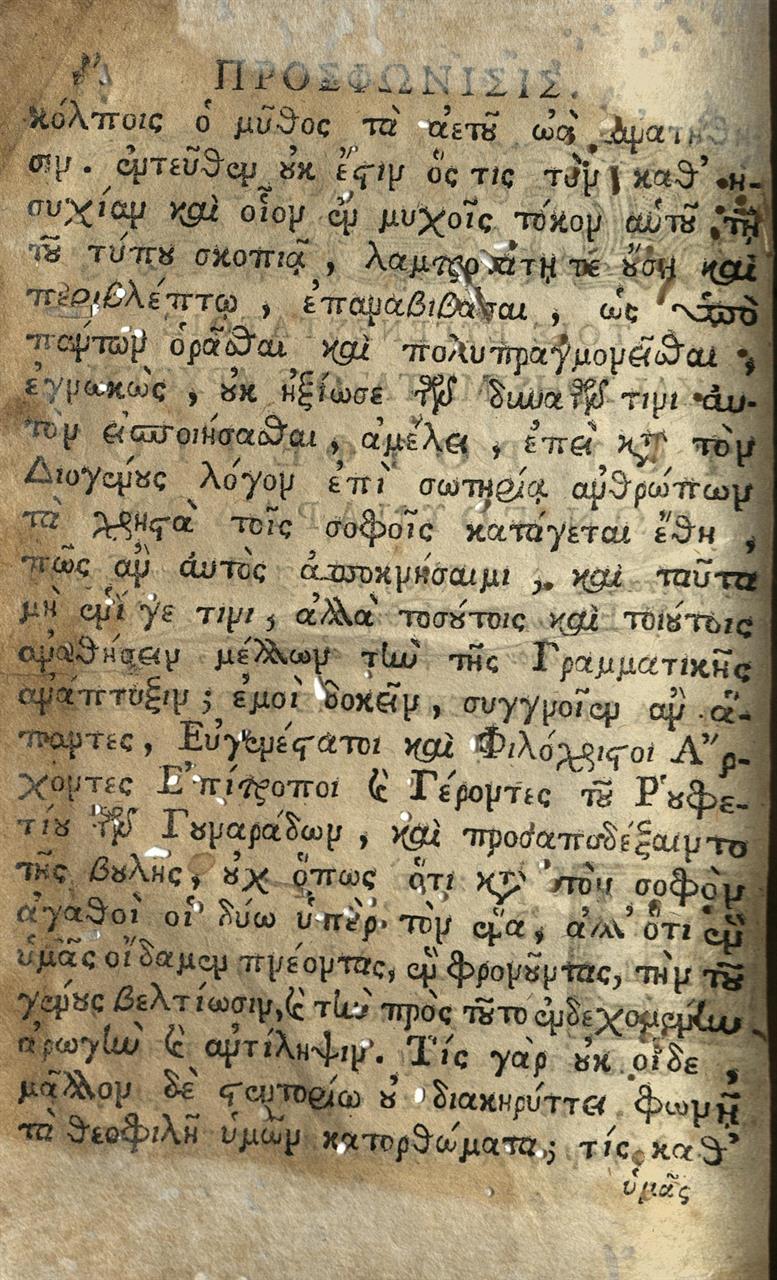 ΠΡΟΣΦΩΝΙΣΙΣ.
κόλποις ὁ μῦθος τὰ ἀετοῦ ὠὰ
σιν. ἐντεῦθεν οὐκ ἔστιν ὅς τις τὸν καθ' ἡ-
συχίαν καὶ οἷον ἐν μυχοῖς τόκον αὐτοῦ τῇ
τοῦ τύπου σκοπιᾷ, λαμπροτάτῃ τε οὔσῃ καὶ
περιβλέπτῳ, ἐπαναβιβάσαι, ὡς ὑπὸ
πάντων ὁρᾶσθαι καὶ πολυπραγμονεῖσθαι,
ἐγνωκὼς, οὐκ ἠξίωσε τῶν δυνατῶν τινι αὐ-
τὸν εἰσποιήσασθαι, ἀμέλει, ἐπεὶ κατὰ τὸν
Διογένους λόγον ἐπὶ σωτηρίᾳ ἀνθρώπων
τὰ χρηστὰ τοῖς σοφοῖς κατάγεται ἔθη,
πῶς ἂν αὐτὸς ἀποκνήσαιμι, καὶ ταῦτα
μὴ ἑνί γε τινι, ἀλλὰ τοσούτοις καὶ τοιούτοις
ἀναθήσειν μέλλων τὴν τῆς Γραμματικῆς
ἀνάπτυξιν; ἐμοὶ δοκεῖν, συγγνοῖεν ἂν ἅ-
παντες, Εὐγενέστατοι καὶ Φιλόχριστοι Ἄρ-
χοντες Ἐπίτροποι καὶ Γέροντες τοῦ Ῥουφε-
τίου τῶν Γουναράδων, καὶ προσαποδέξαιντο
τῆς βουλῆς, οὐχ ὅπως ὅτι κατὰ τὸν σοφὸν
ἀγαθοὶ οἱ δύω ὑπὲρ τὸν ἕνα, ἀλλ' ὅτι ἓν
ὑμᾶς οἴδαμεν πνέοντας, ἓν φρονοῦντας, τὴν τοῦ
γένους βελτίωσιν, καὶ τὴν πρὸς τοῦτο ἐνδεχομένην
ἀρωγὴν καὶ ἀντίληψιν. Τίς γὰρ οὐκ οἶδε,
μᾶλλον δὲ στεντορείῳ οὐ διακηρύττει φωνῇ
τὰ θεοφιλῆ ὑμῶν κατορθώματα; τίς καθ'
ὑμᾶς